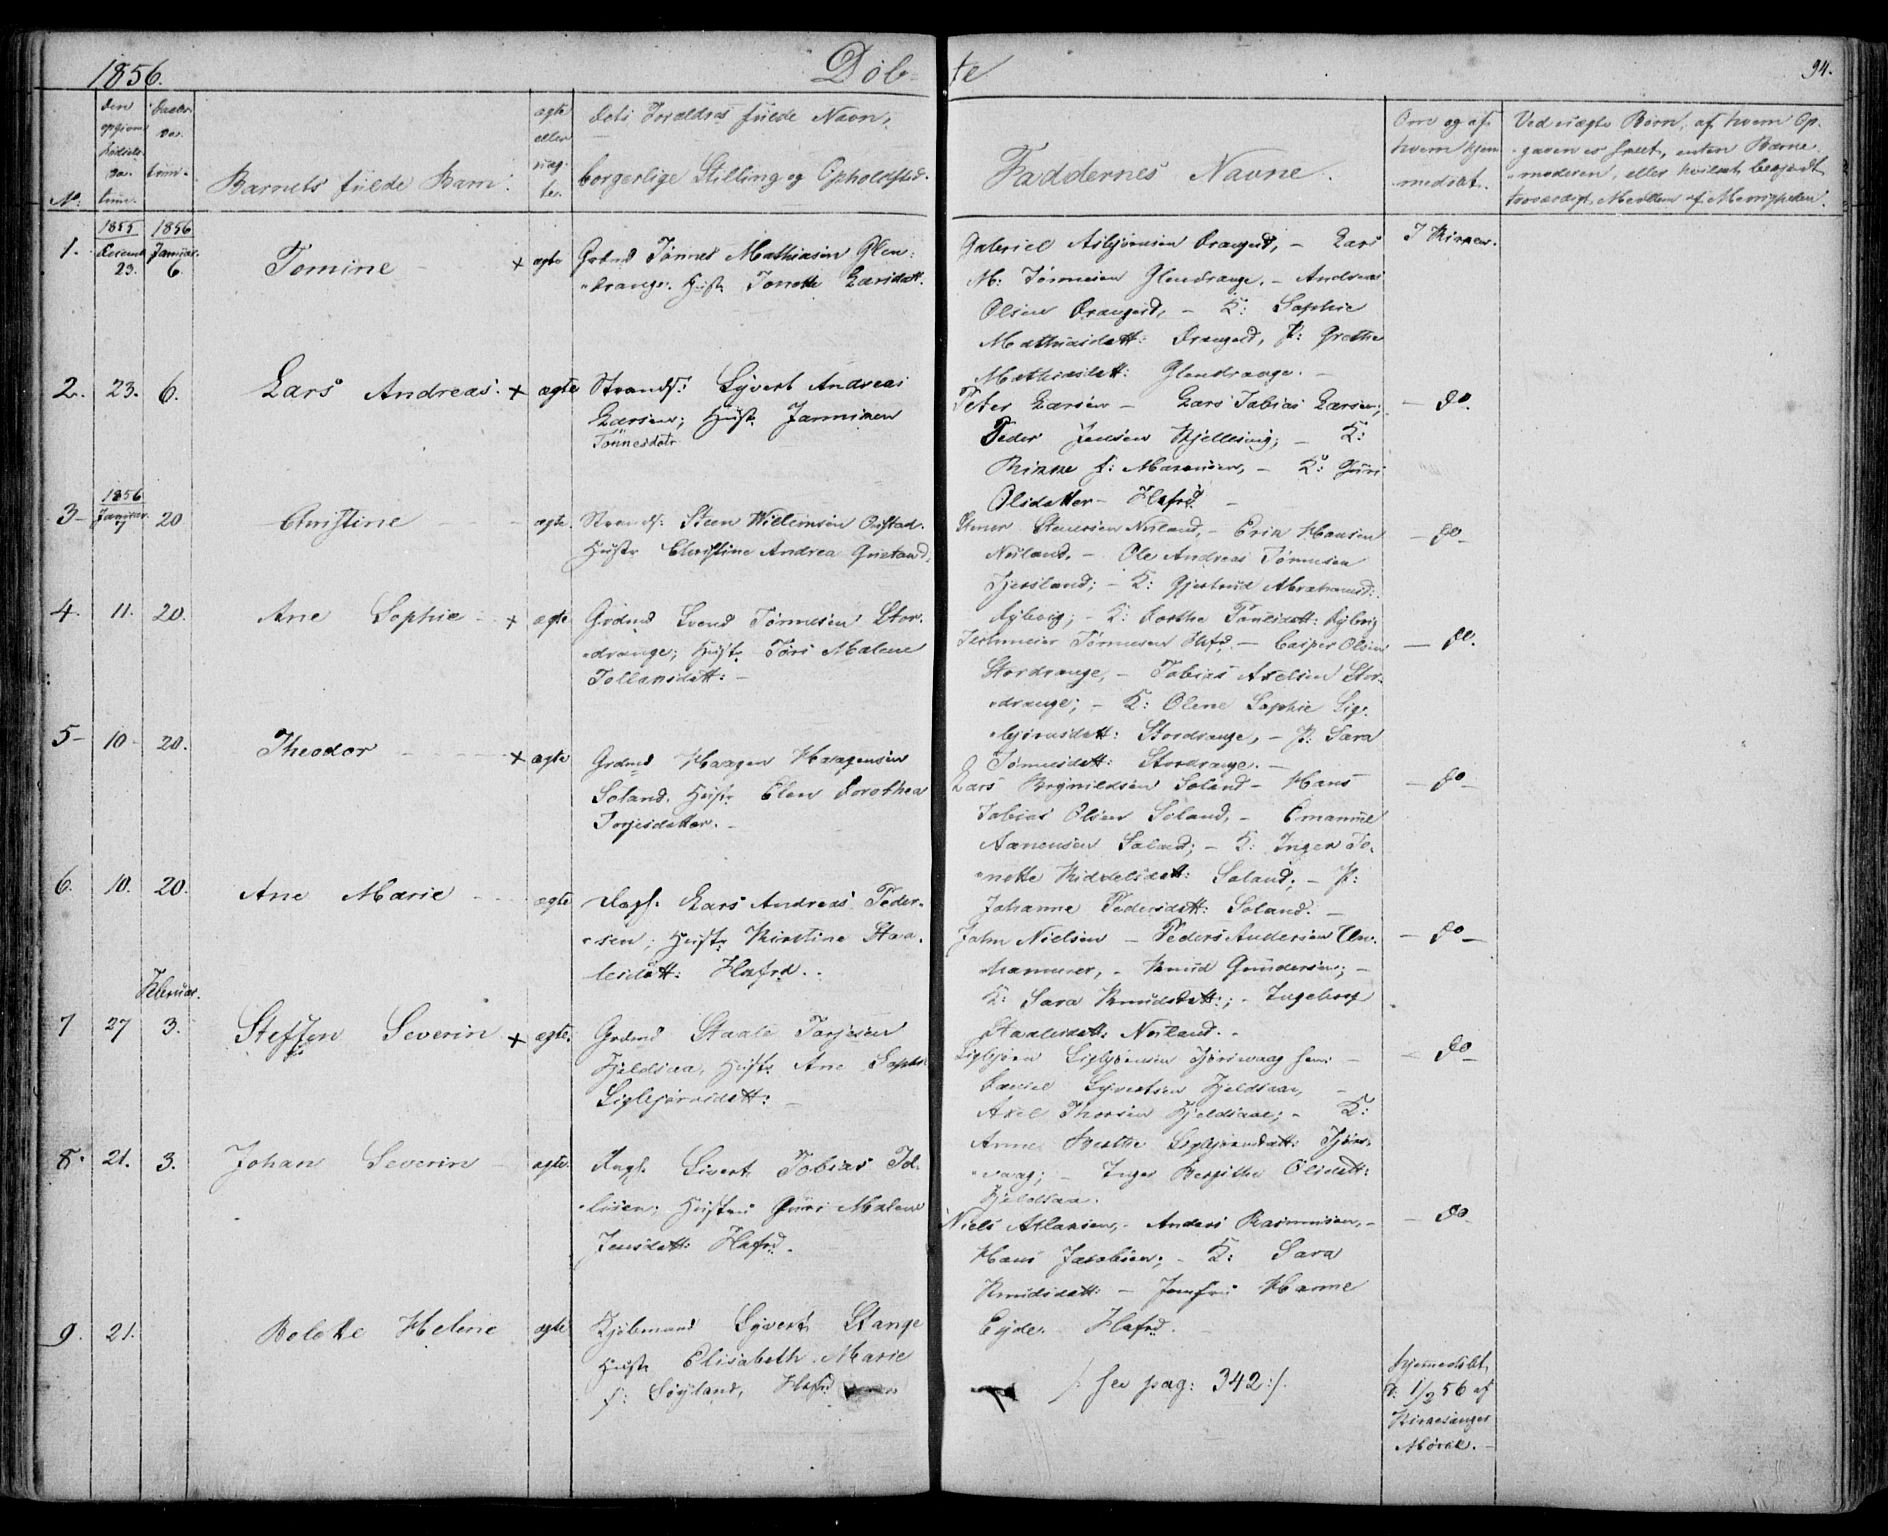 1856.
Døb-
te
94.
No.
Den opgivne Fødsels-Datum.
Daabs-Datum.
Barnets fulde Navn.
ægte eller uægte.
Dets Forældres fulde Navn,
borgerlige Stilling og Opholdsted.
Faddernes Navne.
Om og af hvem hjemmedøbt.
Ved uægte Børn, af hvem Op-
gaven er skeet, enten Barne-
moderen, eller
troværdigt Medlem af Menigheden.
1.
1855
Decemb.
23.
1856
Januar.
6.
Tomine
× ægte
Grdmd Tønnes Mathiasen Glen-
drange. Hustr. Tonette Larsdatt.
Gabriel Asbjørnsen Drangsd, - Lars
M: Tønnesen Glendrange, - Andreas
Olsen Drangsd, - K: Sophie
Mathiasdatt: Drangsd, P: Grethe
Mathiasdatt: Glendrange. -
I Kirken.
2.
23.
6.
Lars Andreas.
× ægte
Strands: Syvert Andreas
Larsen; Hustr. Jannikken
Tönnesdatr
Peter Larsen - Lars Tobias Larsen;
Peder Jensen Kjellesvig; - K:
Rinke f: - K: Guri
Olsdatter - Hafrd -
- do.
3 -
1856
Januar
7
20
Christine
ægte.
Strands: Steen Willemsen
Hustr Christine Andrea
Stener Stenersen Neiland, - Erik Hansen
Neiland, - Ole Andreas Tønnesen
Fjersland; - K: Gjertrud Abrahamsd:
K: Dorthe
- do -
4.
11.
20.
Ane Sophie
× ægte
Grdmd Svend Tønnesen Stor-
drange; Hustr. Tori Malene
Tollaksdatt: -
Tønnesen Hafrd. - Casper Olsen
Stordrange, - Tobias Axelsen Stor-
drange; - K: Olene Sophie Sig-
bjørnsdatt: Stordrange, - P: Sara
Tønnesdatt: Stordrange. -
- do.
5 -
10 -
20.
Theodor
× ægte
Grdmd Haagen Haagensen
Soland. Hustr Elen Dorothea
Torjesdatter. -
Lars Brynildsen Soland - Hans
Tobias Olsen Soland, - Emanuel
Aanensen Soland; - K: Inger To-
nette Kiddelsdatt: Soland; - P:
Johanne Pedersdatt: Soland. -
- do -
6.
10.
20.
Ane Marie
ægte
Dags. Lars Andreas Peder-
sen; Hustr. Kirstine Staa-
lesdatt: Hafrd.
John Nielsen - Peder Andersen
- Knud Gundersen; -
K: Sara Knudsdatt:; - Ingeborg
Staalesdatt: Neiland. -
- do -
7
27
Februar.
3.
Steffen Severin
× ægte.
Grdmd Staale Torjesen
Fjeldsaa, Hustr. Ane Sophie
Sigbjørnsdatt: -
Sigbjørn Sigbjørnsen -
Daniel Syvertsen Fjeldsaa, -
Axel Thorsen Fjeldsaa; - K:
Anne Berthe Sigbjørnsdatt:
- Inger Bergithe Olsdatt:
Fjeldsaa.
- do -
8.
21.
3.
Johan Severin -
ægte.
Dags. Sivert Tobias Tol-
lisen; Hustru Guri Malene
Jensdatt: Hafrd.
Niels Atlaksen, - Anders Rasmussen, -
Hans Jacobsen; - K: Sara
Knudsdatt: - Jomfru Hanne
Eyde. Hafrd. -
- do -
9.
21.
Bolette Helene
ægte
Kjøbmand Syvert Stange
Hustr Elisabeth Marie
f: Søyland, Hafrd
/: see pag: 342 :/.
hjemmedøbt
d: 1/2 56 af
Kirkesanger
Mørck. -